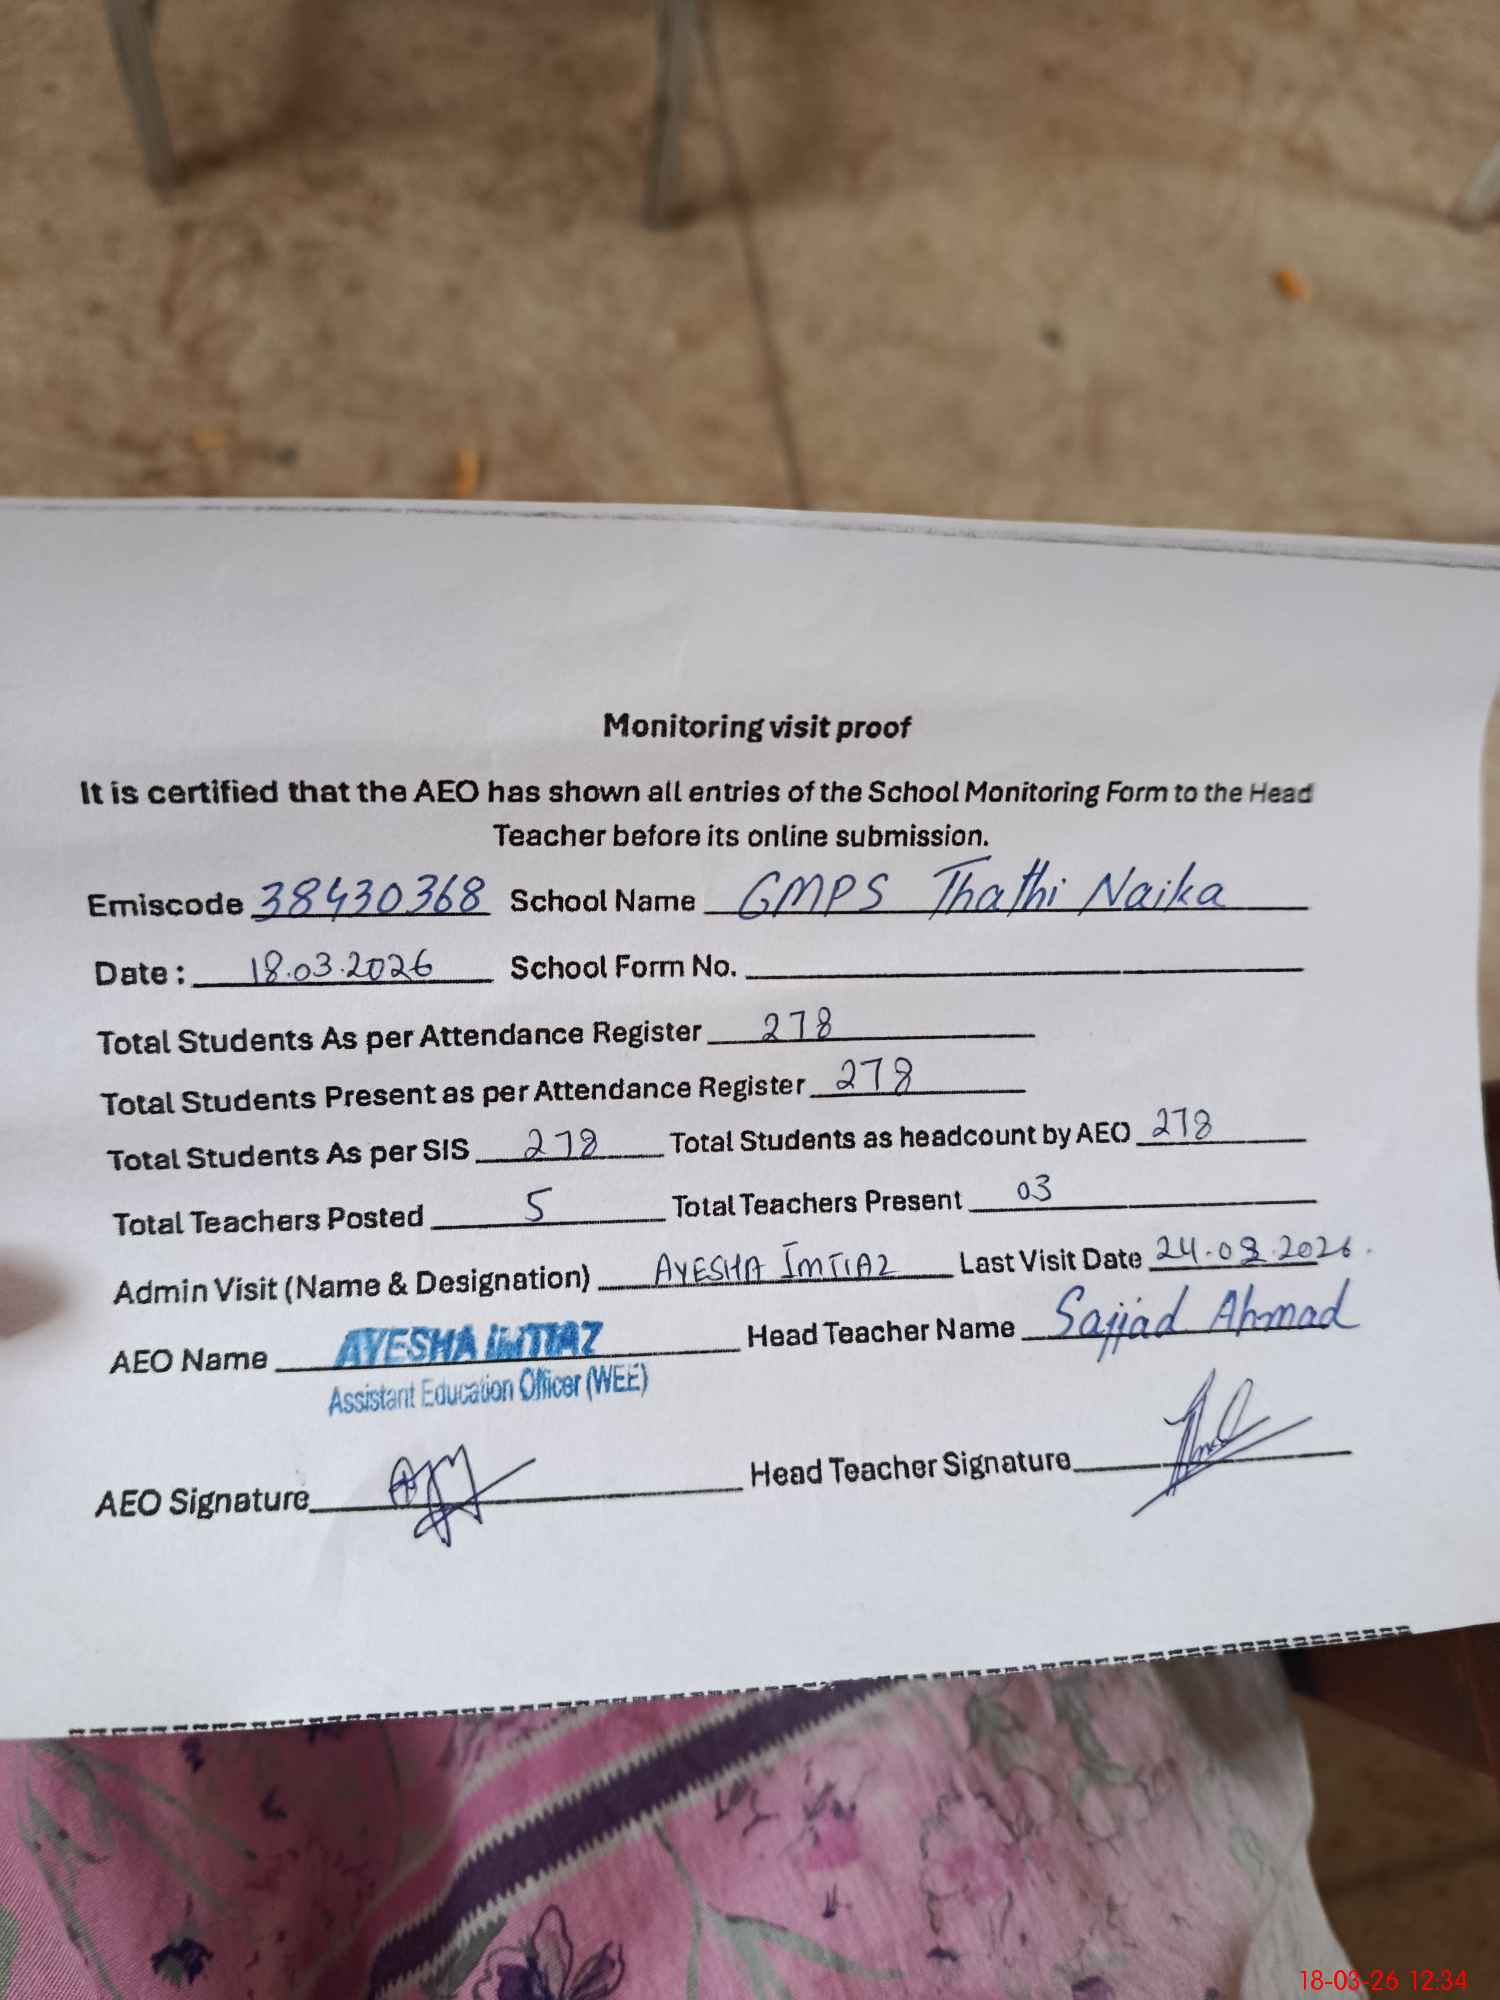 Monitoring visit proof
It is certified that the AEO has shown all entries of the School Monitoring Form to the Head
Teacher before its online submission.
Emiscode 38430368 School Name GMPS Thathi Naika
Date : 18.03.2026 School Form No.
Total Students As per Attendance Register 278
Total Students Present as per Attendance Register 278
Total Students As per SIS 278 Total Students as headcount by AEO 278
Total Teachers Posted 5 Total Teachers Present 03
Admin Visit (Name & Designation) AYESHA IMTIAZ Last Visit Date
AEO Name AYESHA IMTIAZ Head Teacher Name Sajjad Ahmad
Assistant Education Officer (WEE)
AEO Signature Head Teacher Signature
18-03-26 12:34